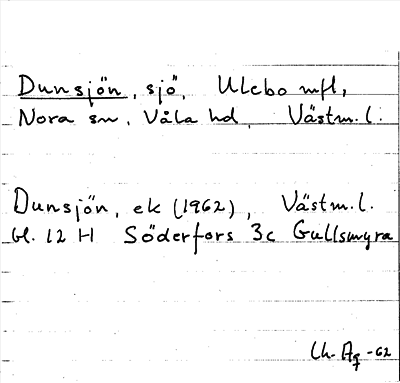 Dunsjön, sjö, Ulebo mfl,
Nora sn, Våla hd, Västm.l.
Dunsjön, ek (1962), Västm.l.
bl. 12 H Söderfors 3c Gullsmyra
Ch. Ag -62